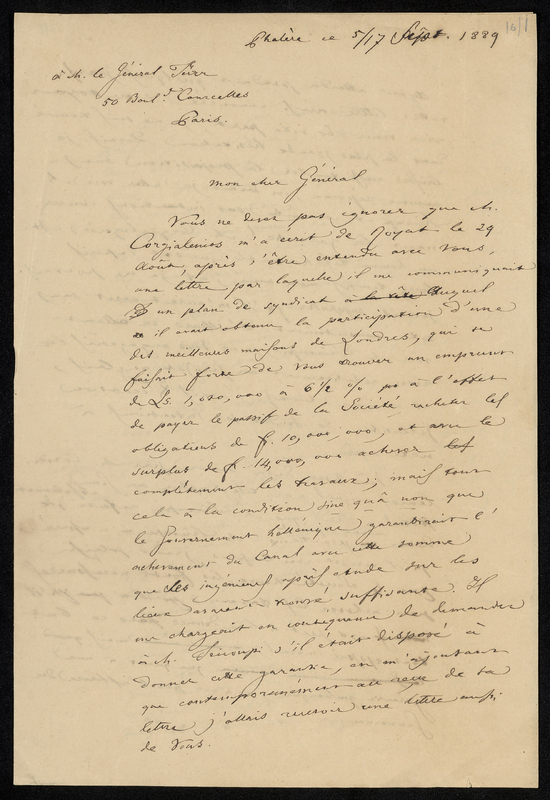 Phalère ce 5/17 Sept. 1889
16/1
à M. le Général Türr
50 Boul.d Courcelles
Paris.
Mon cher Général
Vous ne devez pas ignorer que M.
Corgialenios m'a écrit de Royat le 29
Août, après s'être entendu avec Vous,
une lettre par laquelle il me communiquait
un plan de syndicat à la tête duquel
il avait obtenu la participation d'une
des meilleures maisons de Londres, qui se
faisait forte de Vous trouver un emprunt
de Ls. 1,000,000 à 6 1/2 % à l'effet
de payer le passif de la Société racheter les
obligations de f. 10,000,000, et avec le
surplus de f. 14,000,000 achever les
complètement les travaux; mais tout
cela à la condition sine quâ non que
le Gouvernement hellénique garantirait l'
achèvement du Canal avec cette somme
que les ingénieurs après etude sur les
lieux avaient trouvé suffisante. Il
me chargeait en conséquence de demander
à M. Tricoupi s'il était disposé à
donner cette garantie, en m'ajoutant
que contemporainément au reçu de sa
lettre j'allais recevoir une lettre aussi
de Vous.